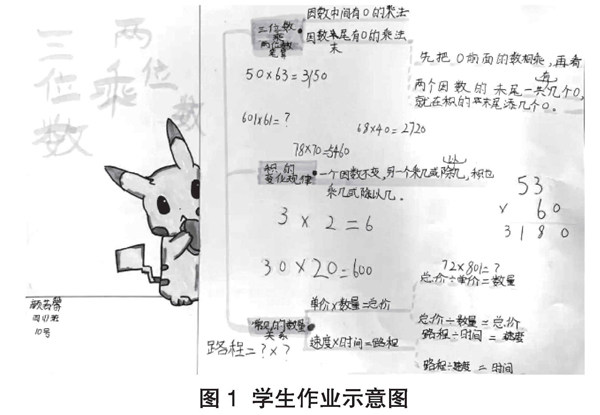 三位数
乘
两位数
三位数
乘
两位数
笔算
因数中间有0的乘法
因数末尾有0的乘法
末
先把0前面的数相乘,再看
两个因数的末尾一共几个0,
就在积的末尾添几个0。
50×63=3150
601×61=?
68×40=2720
78×70=5460
积的
变化规律
一个因数不变,另一个乘几或除几,积也
乘几或除以几。
53
× 60
3180
3×2=6
30×20=600
72×801=?
总价÷单价=数量
单价×数量=总价
总价÷数量=总价
常见的数量
关系
速度×时间=路程
路程÷时间=速度
路程÷速度=时间
路程=?×?
四(1)班
10号
图1 学生作业示意图